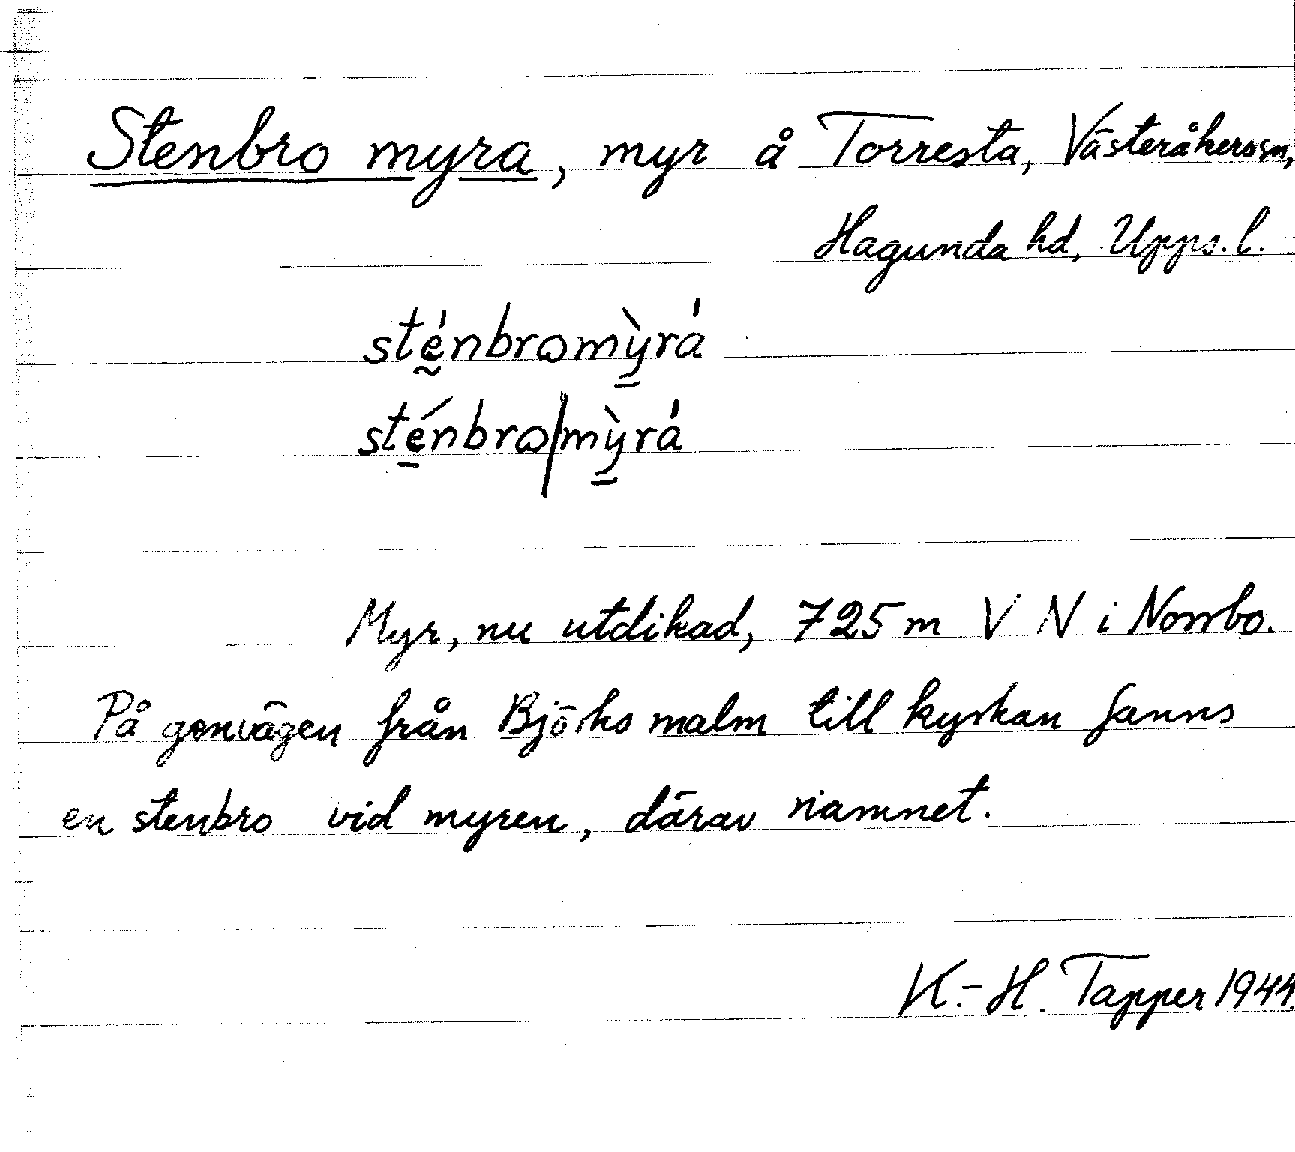 Stenbro myra, myr å Torresta, Västeråkers sn,
Hagunda hd, Upps. l.
sténbromỳrá
sténbro/mỳrá
Myr, nu utdikad, 725 m V N i Norrbo.
På genvägen från Björksmalm till kyrkan fanns
en stenbro vid myren, därav namnet.
K.-H. Tapper 1944.